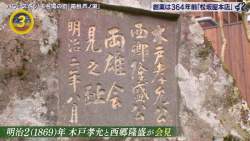 創業は364年前「松坂屋本店」
3
木戸孝允公
西郷隆盛公
両雄会
見之趾
明治二年八月
明治2(1869)年 木戸孝允と西郷隆盛が会見